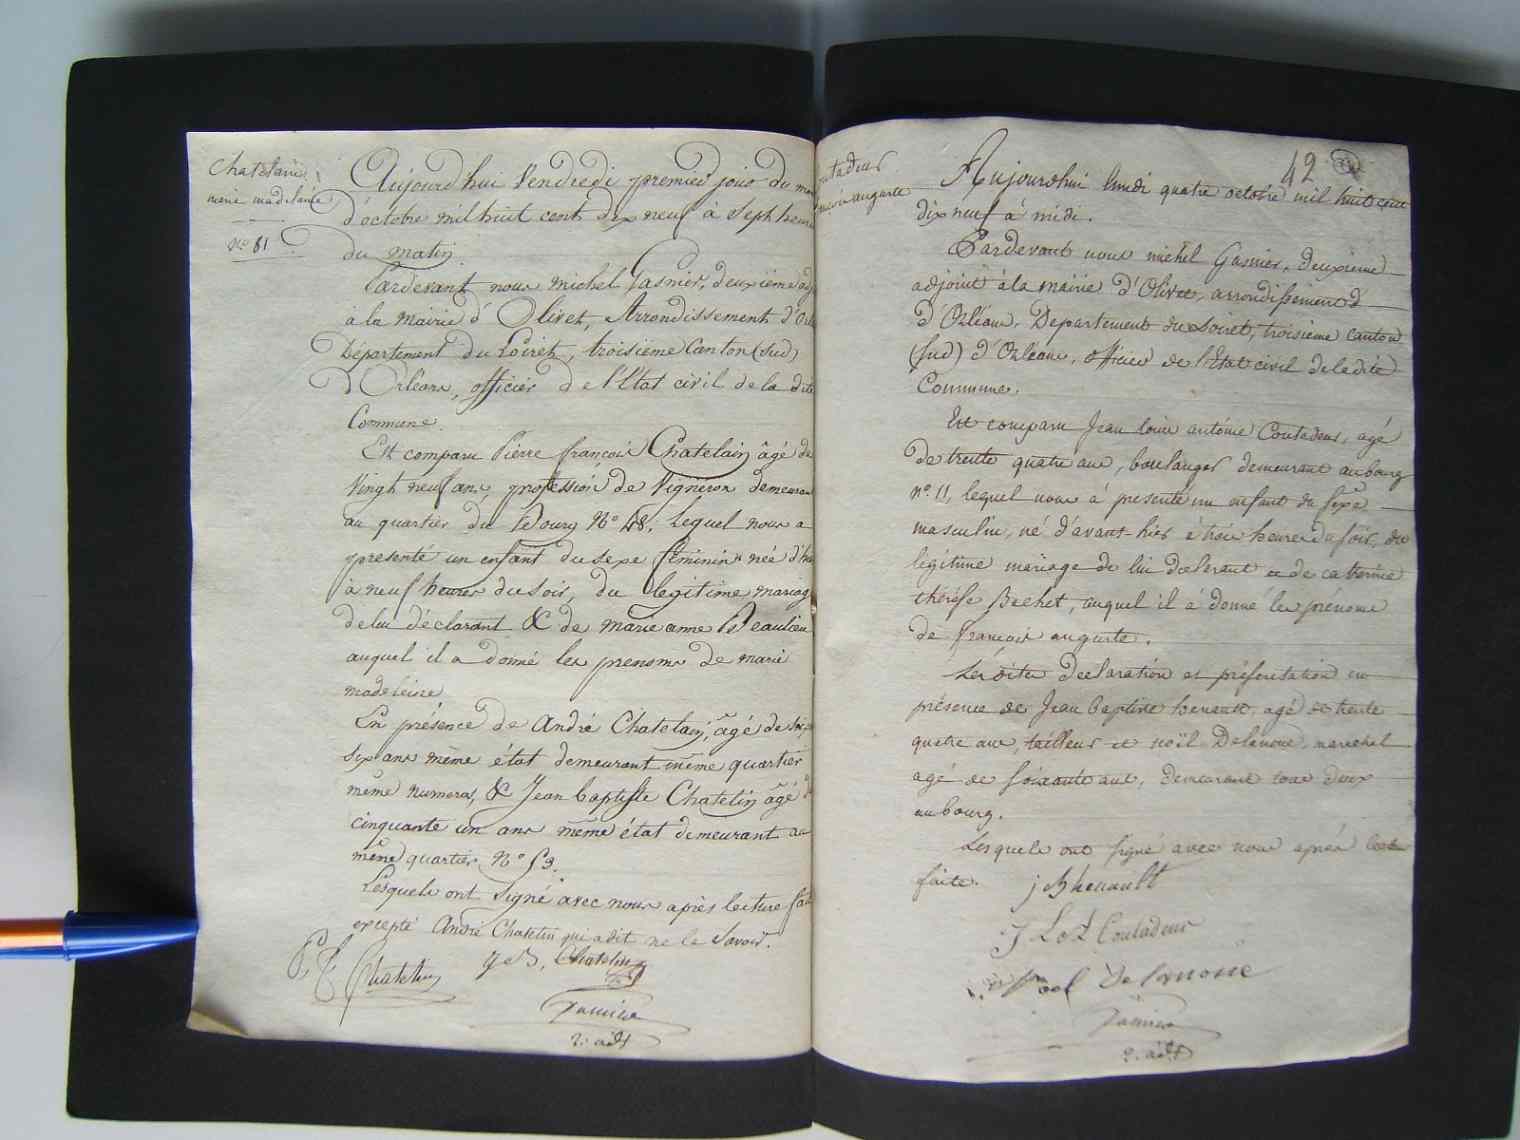 Chatelain
marie madelaine
N° 81
Aujourd'hui Vendredi premier jour du mois
d'octobre mil huit cent dix neuf à Sept heures
du matin.
Pardevant nous michel Gasnier, deuxième adj
à la mairie d'Olivet, Arrondissement d'Orl
Département du Loiret, troisième Canton (sud)
d'Orléans, officier de l'Etat civil de la dite
Commune.
Est comparu Pierre françois Chatelain âgé de
Vingt neuf ans, profession de Vigneron demeurant
au quartier du Bourg N° 48, Lequel nous a
presenté un enfant du sexe féminin née d'hier
à neuf heures du soir, du legitime mariag
de lui déclarant & de marie anne Beaulieu
auquel il a donné les prenoms de marie
madeleine
En présence de André Chatelain, âgé de
six ans même état demeurant même quartier
même numero, & Jean baptiste Chatelin âgé
cinquante un ans même état demeurant au
même quartier N° 53.
Lesquels ont signé avec nous après lecture fait
excepté André Chatelin qui a dit ne le Savoir.
P F Chatelin
J B. Chatelin
Gasnier
2e adjt
42
Coutadeur
françois auguste
Aujourdhui lundi quatre octobre mil huit cent
dix neuf à midi.
Pardevant nous michel Gasnier, deuxieme
adjoint à la mairie d'Olivet, arrondissement d
d'Orléans, Departement du Loiret, troisieme canton
(sud) d'Orléans, officier de l'Etat civil de ladite
Commune.
Est comparu Jean louis antoine Coutadeur, agé
de trente quatre ans, boulanger demeurant au bourg
n° 11, lequel nous à presenté un enfant du sexe
masculin, né d'avant-hier à trois heures du soir, du
légitime mariage de lui déclarant et de catherine
thérèse Bechet, auquel il à donné les prénoms
de françois auguste.
Lesdites déclaration et présentation en
présence de Jean baptiste henault, agé de trente
quatre ans, tailleur et noël Delanoue, marechal
agé de soixante ans, demeurant tous deux
au bourg.
Lesquels ont signé avec nous après lecture
faite.
j B henault
J L A Coutadeur
noel De lanoue
Gasnier
2. adjt